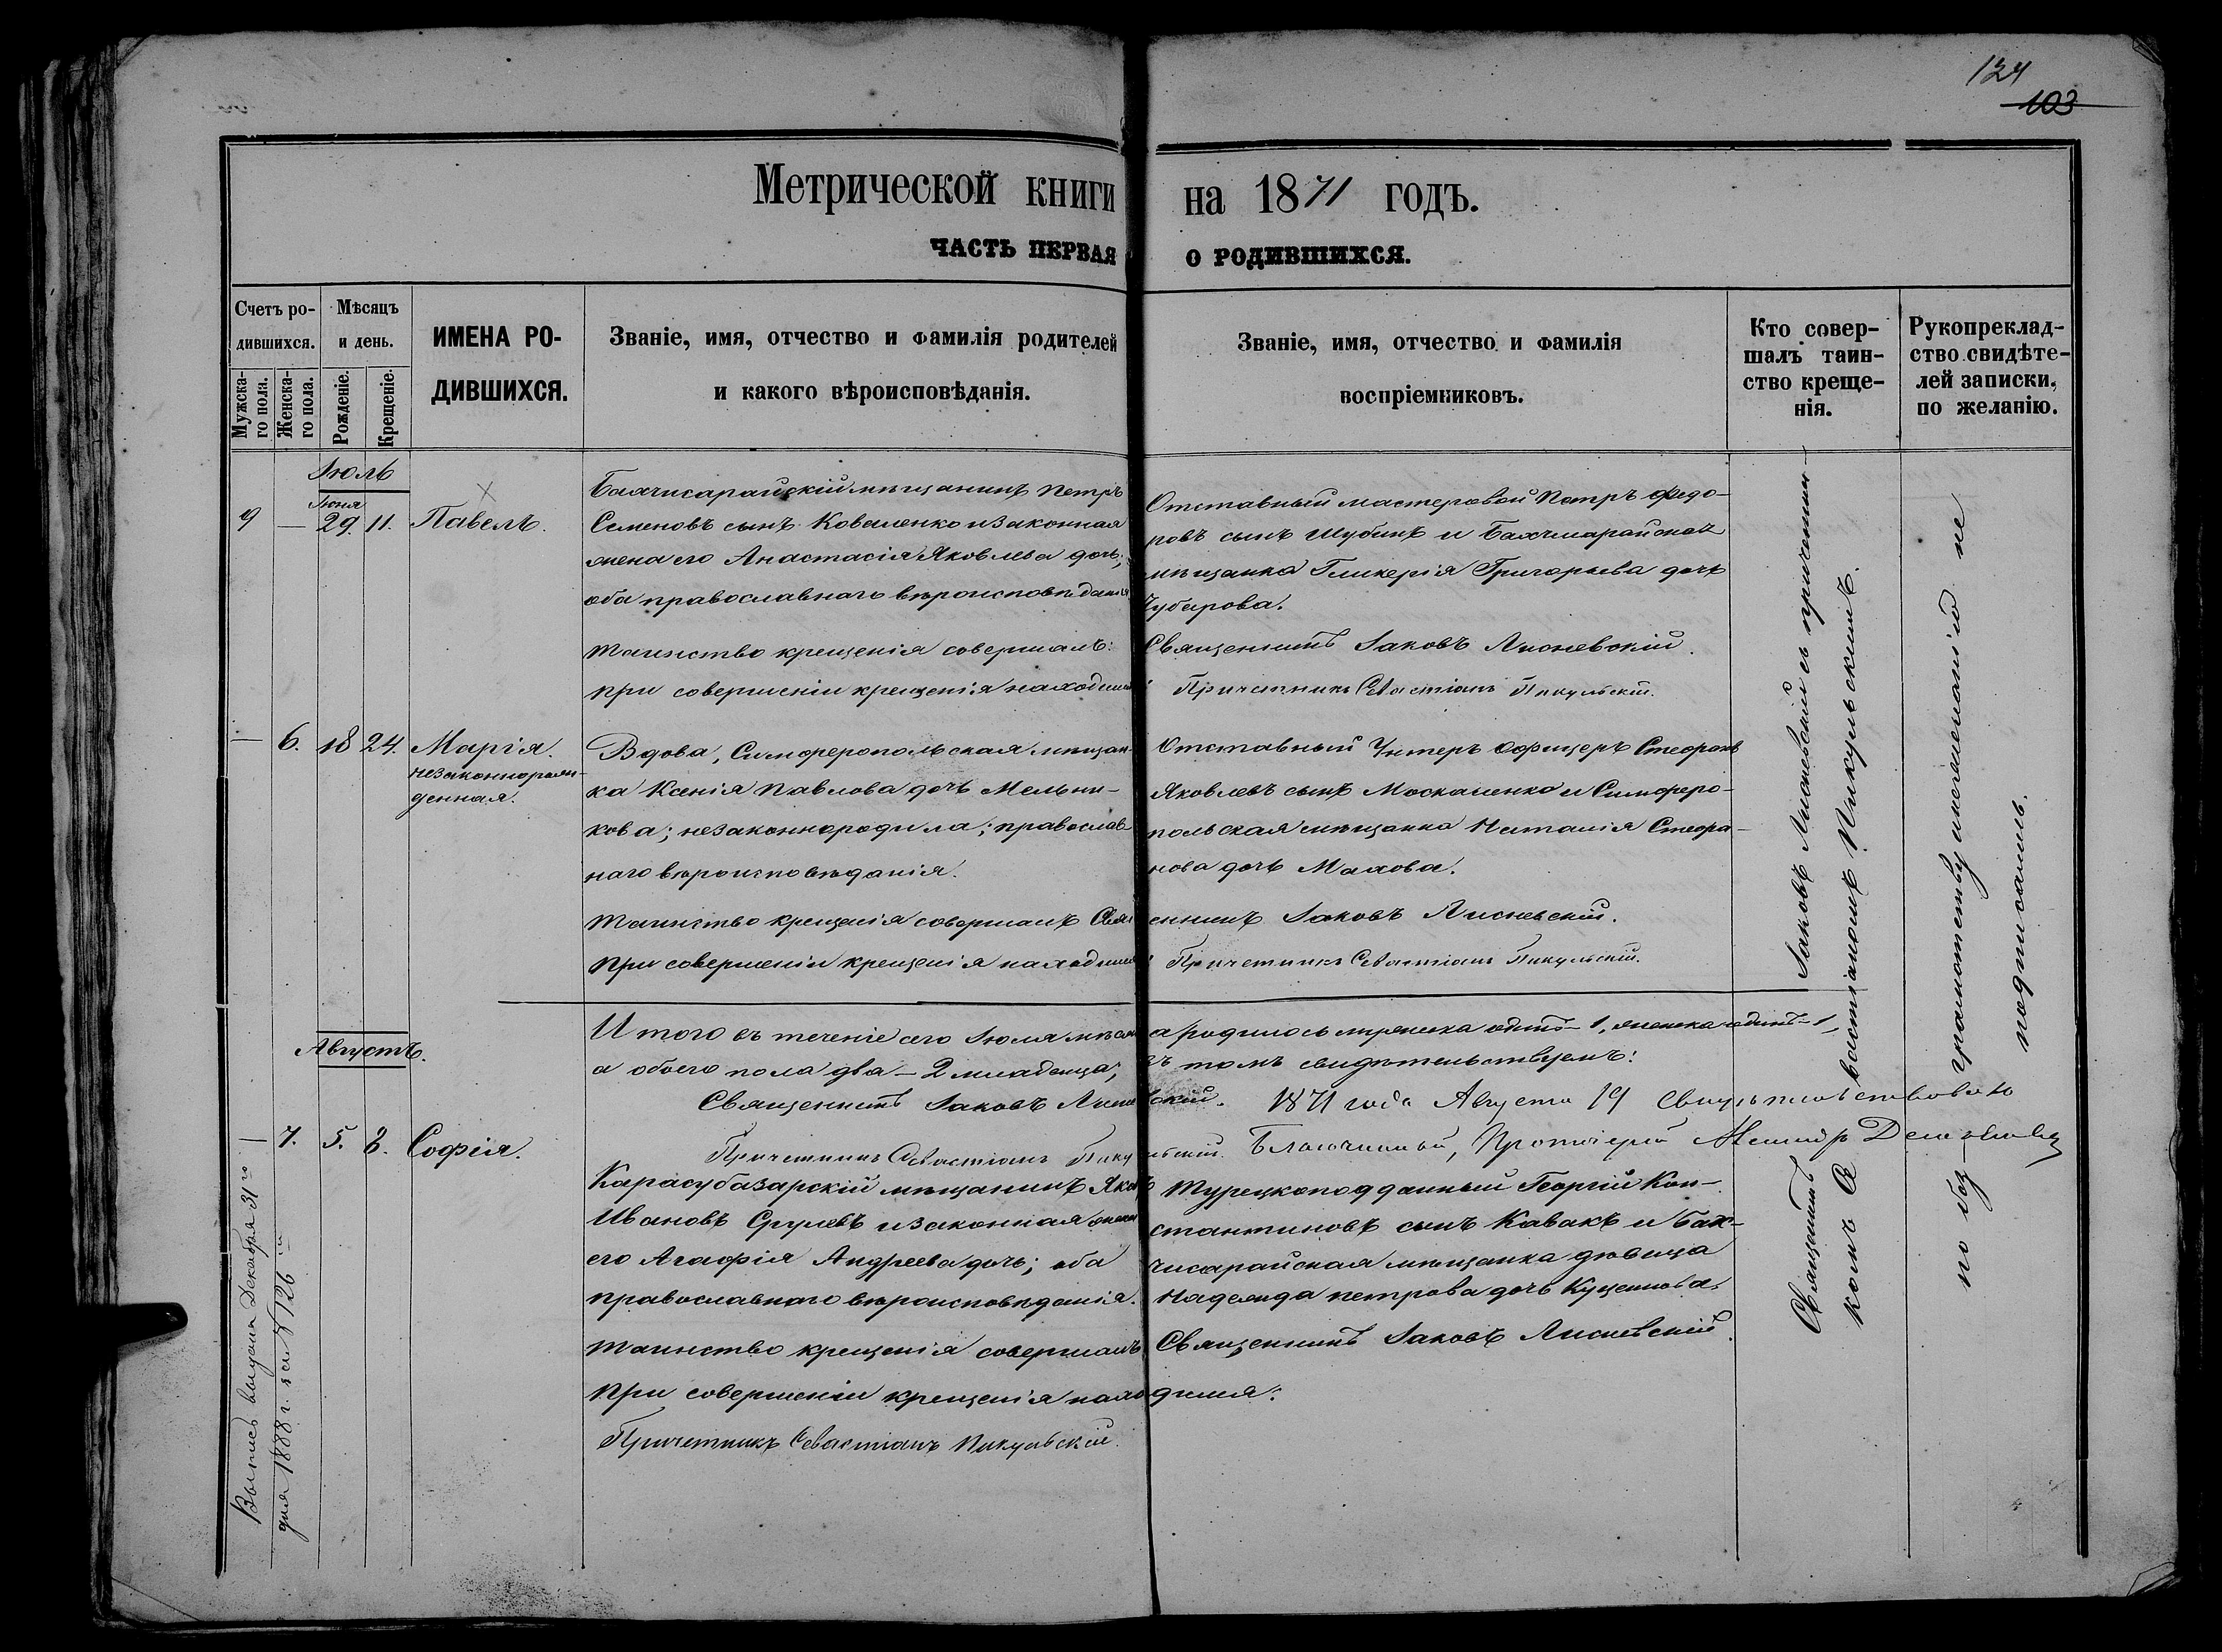 124
103
Метрической книги на 1871 годъ.
ЧАСТЬ ПЕРВАЯ О РОДИВШИХСЯ.
Счетъ ро-
дившихся.
Мужска-
го пола.
Женска-
го пола.
Мѣсяцъ
и день.
Рожденіе.
Крещеніе.
ИМЕНА РО-
ДИВШИХСЯ.
Званіе, имя, отчество и фамилія родителей
и какого вѣроисповѣданія.
Званіе, имя, отчество и фамилія
воспріемниковъ.
Кто совер-
шалъ таин-
ство креще-
нія.
Рукоприклад-
ство свидѣте-
лей записки,
по желанію.
Іюль
Іюня
9 — 29. 11. Павелъ.
Бахчисарайскій мѣщанинъ Петръ
Семеновъ сынъ Коваленко и законная
жена его Анастасія Яковлева дочь;
оба православнаго вѣроисповѣданія
Таинство крещенія совершалъ:
при совершеніи крещенія находился
Отставный мастеровой Петръ Федо-
ровъ сынъ Шубинъ и Бахчисарайская
мѣщанка Гликерія Григорьева дочь
Чубарова.
Священникъ Іаковъ Лисневскій.
Причетникъ Севастіанъ Пикульскій.
— 6. 18 24. Марія.
незаконнорож-
денная.
Вдова, Симферопольская мѣщан-
ка Ксенія Павлова дочь Мельни-
кова; незаконнородила; православ-
наго вѣроисповѣданія.
Таинство крещенія совершалъ Свя
При совершеніи крещенія находился
Отставный Унтеръ Офицеръ Стефанъ
Яковлевъ сынъ Москаленко и Симферо-
польская мѣщанка Наталія Стефа-
нова дочь Махова.
енникъ Іаковъ Лисневскій.
Причетникъ Севастіанъ Пикульскій.
Итого въ теченіе сего Іюля мѣсяца родилось мужеска одинъ - 1, женска одинъ - 1,
а обоего пола два - 2 младенца; въ томъ свидѣтельствуемъ:
Священникъ Іаковъ Лисневскій. 1871 года Августа 19 свидѣтельствовалъ
Причетникъ Севастіанъ Пикульскій. Благочинный, Протоіерей
Августъ.
— 7. 5. 8. Софія.
Карасубазарскій мѣщанинъ Яковъ
Ивановъ Срулевъ и законная жена
его Агафія Андреева дочь; оба
православнаго вѣроисповѣданія.
Таинство крещенія совершалъ
При совершеніи крещенія находился:
Причетникъ Севастіанъ Пикульскій.
Турецкоподданный Георгій Кон-
стантиновъ сынъ Кавакъ и Бах-
чисарайская мѣщанка дѣвица
Надежда Петрова дочь Куценкова.
Священникъ Іаковъ Лисневскій.
Священникъ Іаковъ Лисневскій съ причетни-
комъ Севастіаномъ Пикульскимъ.
по без-грамотству и нежеланію не
подписались.
Выпись выдана Декабря 31го
дня 1888 г. за № 126